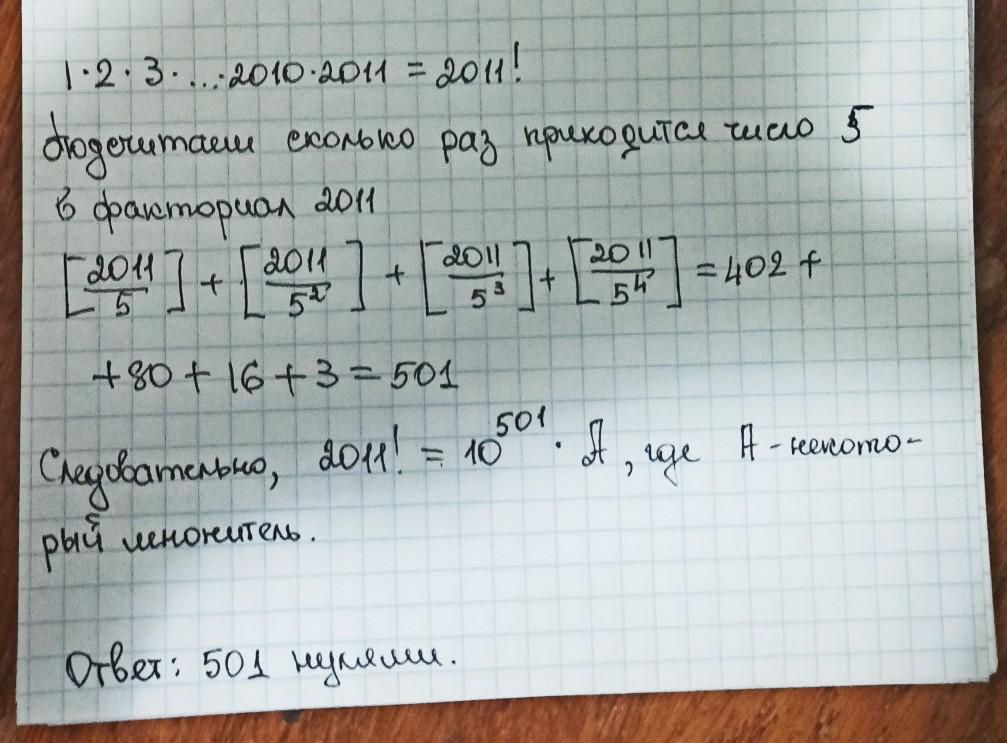 1·2·3·...·2010·2011 = 2011!
Подсчитаем сколько раз приходится число 5
в факториал 2011
[2011/5] + [2011/5²] + [2011/5³] + [2011/5⁴] = 402 +
+ 80 + 16 + 3 = 501
Следовательно, 2011! = 10⁵⁰¹ · A, где A - некото-
рый множитель.
Ответ: 501 нулями.